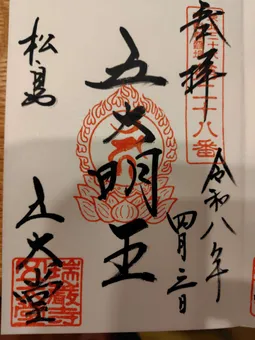 奉拝
二十八番
令和八年
四月三日
五大明王
松島
五大堂
瑞巌寺